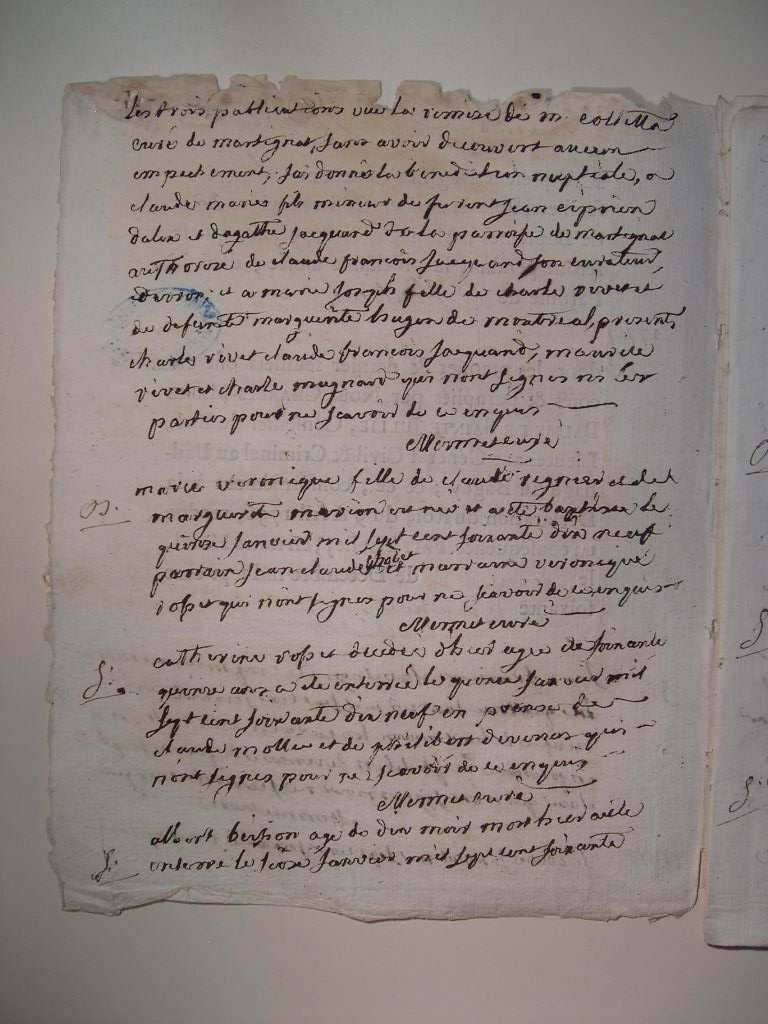 les trois publications vue la remise de m. colletta
curé de martignat, sans avoir decouvert aucun
empechement, j'ai donnés la benediction nuptiale, a
claude maries fils mineur de furent jean ciprien
dalex et dagathe jacquand de la parroisse de martignat
authorosé de claude françois jacquand son curateur,
et a marie joseph fille de charle rivet et
de defunte marguerite hugon de montreal, presents
charle rivet claude françois jacquand, maurile
rivet et charle magnard qui n'ont signes ni les
parties pour ne scavoir de ce enquis
Mermet curé
marie veronique fille de claude regnier et de
B. marguerite marion est née et a été baptisée le
quinze janvier mil sept cent soixante dix neuf
parrain jean claude et marraine veronique
rosset qui n'ont signes pour ne scavoir de ce enquis
Mermet curé
catherine rosset decedée d'hier agee de soixante
S. quinze ans a ete enterrée le quinze janvier mil
sept cent soixante dix neuf en presence de
claude mollie et de philibert divenes qui
n'ont signes pour ne scavoir de ce enquis
Mermet curé
albert beisson age de dix mois mort hier a ete
S. enterré le seize janvier mil sept cent soixante